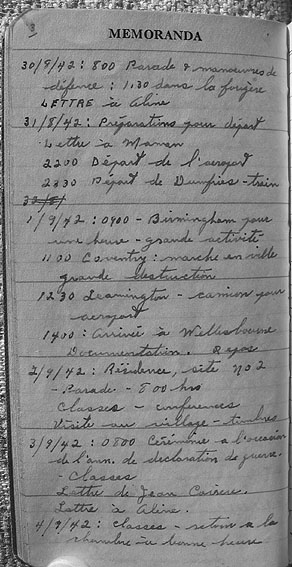 3
MEMORANDA
30/8/42: 800 Parade & manoeuvres de
défence: 1.30 dans la fougère
LETTRE à Aline
31/8/42: Préparations pour départ
Lettre à Maman
2200 Départ de l'aeroport
2330 Départ de Dumfries - train
1/9/42: 0900 - Birmingham pour
une heure - grande activité
1100 Coventry: marche en ville
grande destruction
1230 Leamington - camion pour
aeroport
1400: Arrivée à Wellesbourne
Documentation. Repos
2/9/42: Résidence, site No 2
- Parade - 800 hrs
Classes - conferences
Visite au village - timbres
3/9/42: 0800 Cérémonie a l'occasion
de l'ann. de declaration de guerre.
- Classes
Lettre de Jean
Lettre à Aline.
4/9/42: Classes - retour a la
chambre de bonne heure